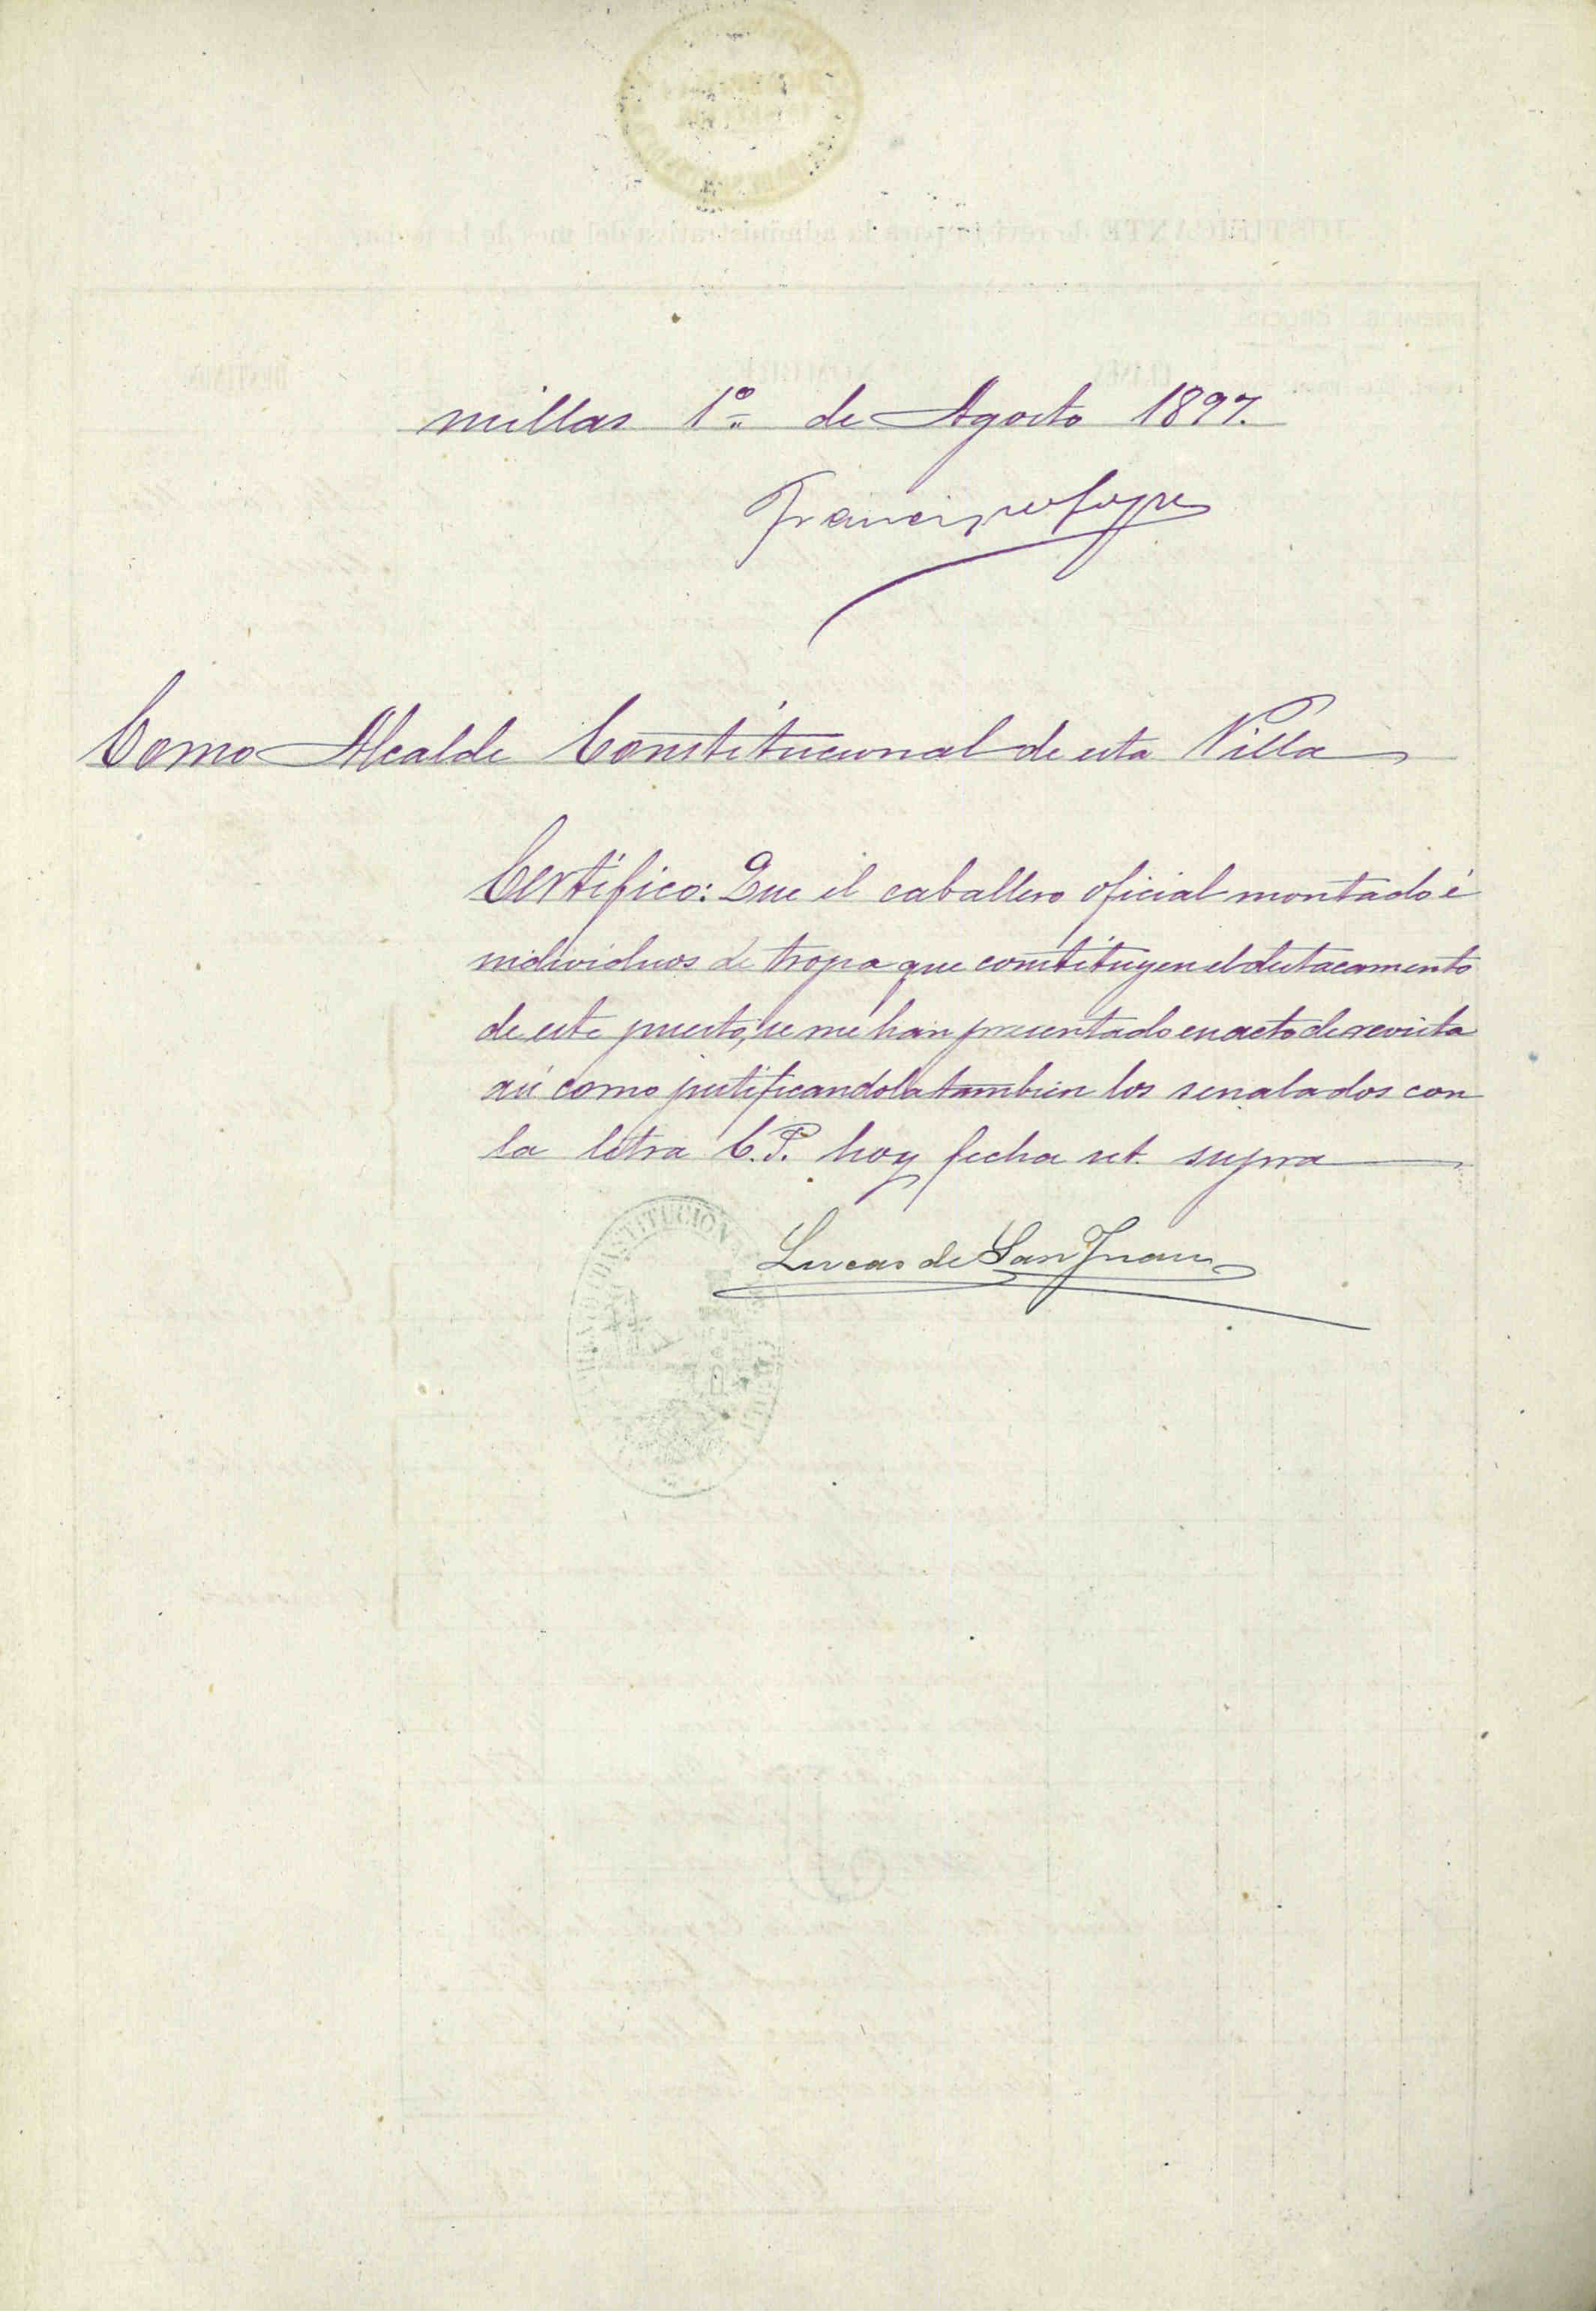 millas 1º de Agosto 1897.
Francisco
Como Alcalde Constitucional de esta Villa
Certifico: Que el caballero oficial montado é
individuos de tropa que constituyen el destacamento
de este puesto, se me han presentado en acto de revista
así como justificandola tambien los senalados con
la letra C.P. hoy fecha ut. supra
Lucas de San Juan
CONSTITUCION